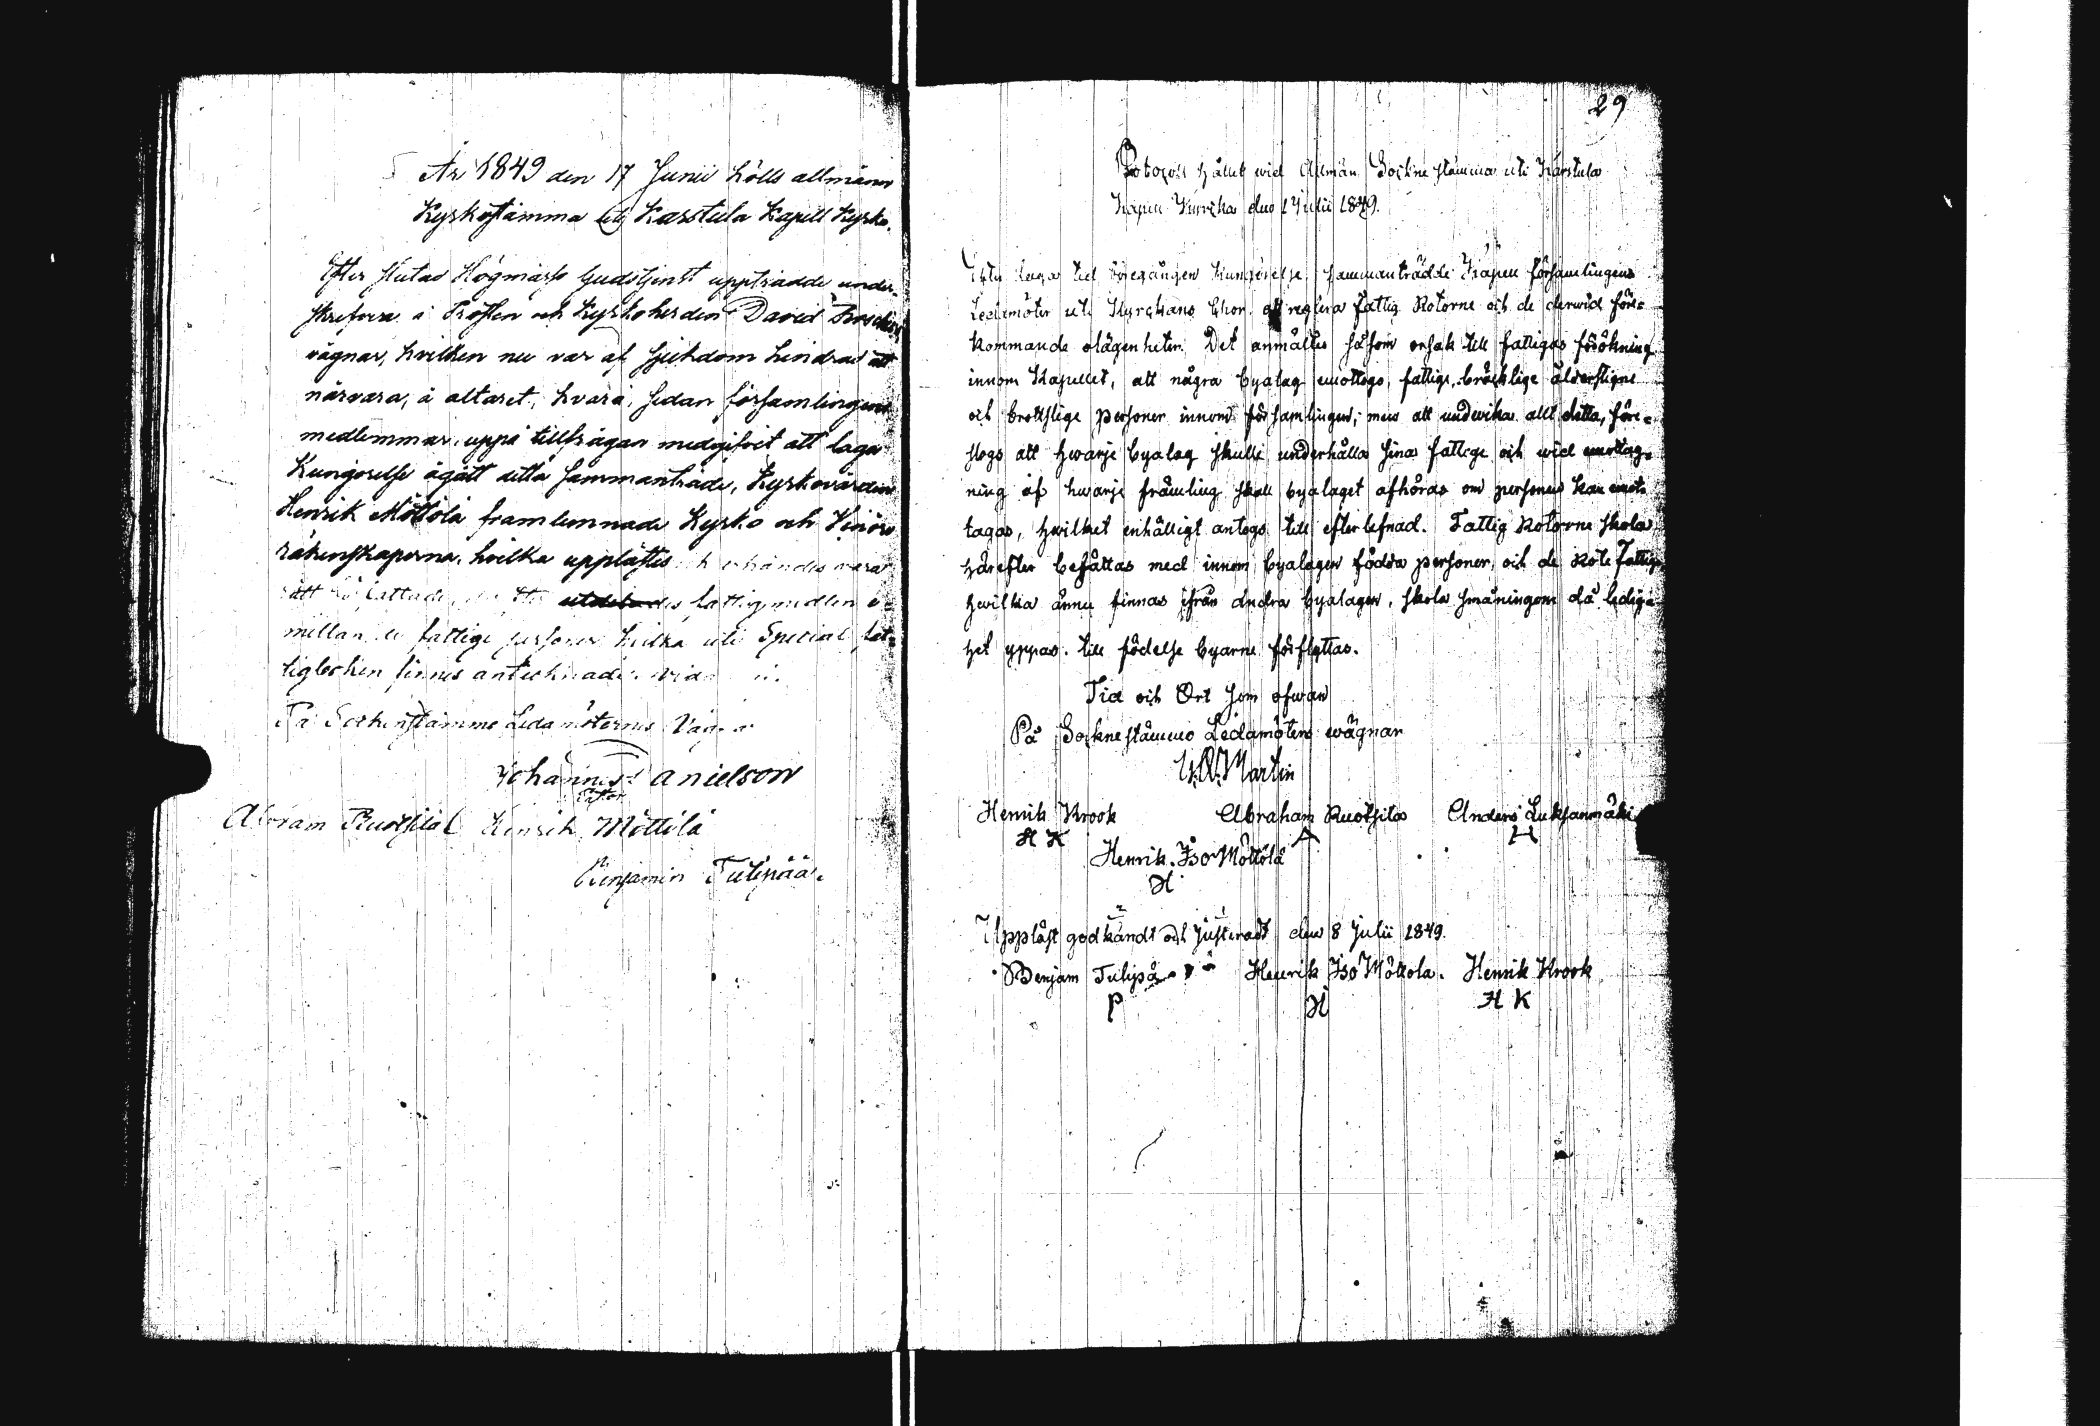 År 1849 den 17 Junii hölls allmänn
Kyrkostämma uti Karstula Kapell Kyrko.
Efter slutad Högmässo Gudstjenst uppträdde under-
skrefven i Prosten och Kyrkoherden David
vägnar, hvilken nu var af sjukdom hindrad att
närvara, å altaret, hvarå, sedan församlingens
medlemmar uppå tillfrågan medgifvit att laga
Kungörelse ågått detta sammanträde, Kyrkovärden
Henrik Möttölä framlemnade Kyrko och
räkenskaperna, hvilka upplästes
rätt författade, utdelades fattigmedlen e-
mellan de fattige personer hvilka uti Special fat-
tigboken finnas antecknade.
På Sockenstämmo Ledamöternes Vägnar
Johannes Danielson
Pastor
Abram Ruotsila Henrik Möttölä
Benjamin Tulipää.
29
Protocoll hållit wid Allmän Sockne stämma uti Karstula
Kapell Kyrcka den 1 Julii 1849.
Efter laga tid föregången Kungörelse, sammanträdde Kapell församlingens
Ledamöter uti Kyrckans Chor att reglera fattig Rotorne och de derwid före=
kommande olägenheter. Det anmältes såsom orsak till fattigas förökning
innom Kapellet, att några byalag emottogo, fattige, bräcklige ålderstigne
och brottslige personer innom församlingen; men att undwika allt detta, före=
slogs att hwarje byalag skulle underhålla sina fattige och wid emottag=
ning af hwarje främling skall byalaget afhöras om personen kan emot-
tagas, hwilket enhälligt antogs till efterlefnad. Fattig Rotorne skola
härefter befattas med innom byalagen födda personer, och de Rote Fattige
hwilka ännu finnas ifrån andra byalagen, skola småningom då ledig-
het yppas till födelse byarne förflyttas.
Tid och Ort som ofwan
På Sockne stämmo Ledamöters wägnar
Martin
Henrik Krook Abraham Ruotsila Anders Luksanmäki
H K A H
Henrik Iso Möttölä
H
Uppläst godkändt och justeradt den 8 Julii 1849.
Benjam Tulipää Henrik Iso Möttölä. Henrik Krook
P H H K